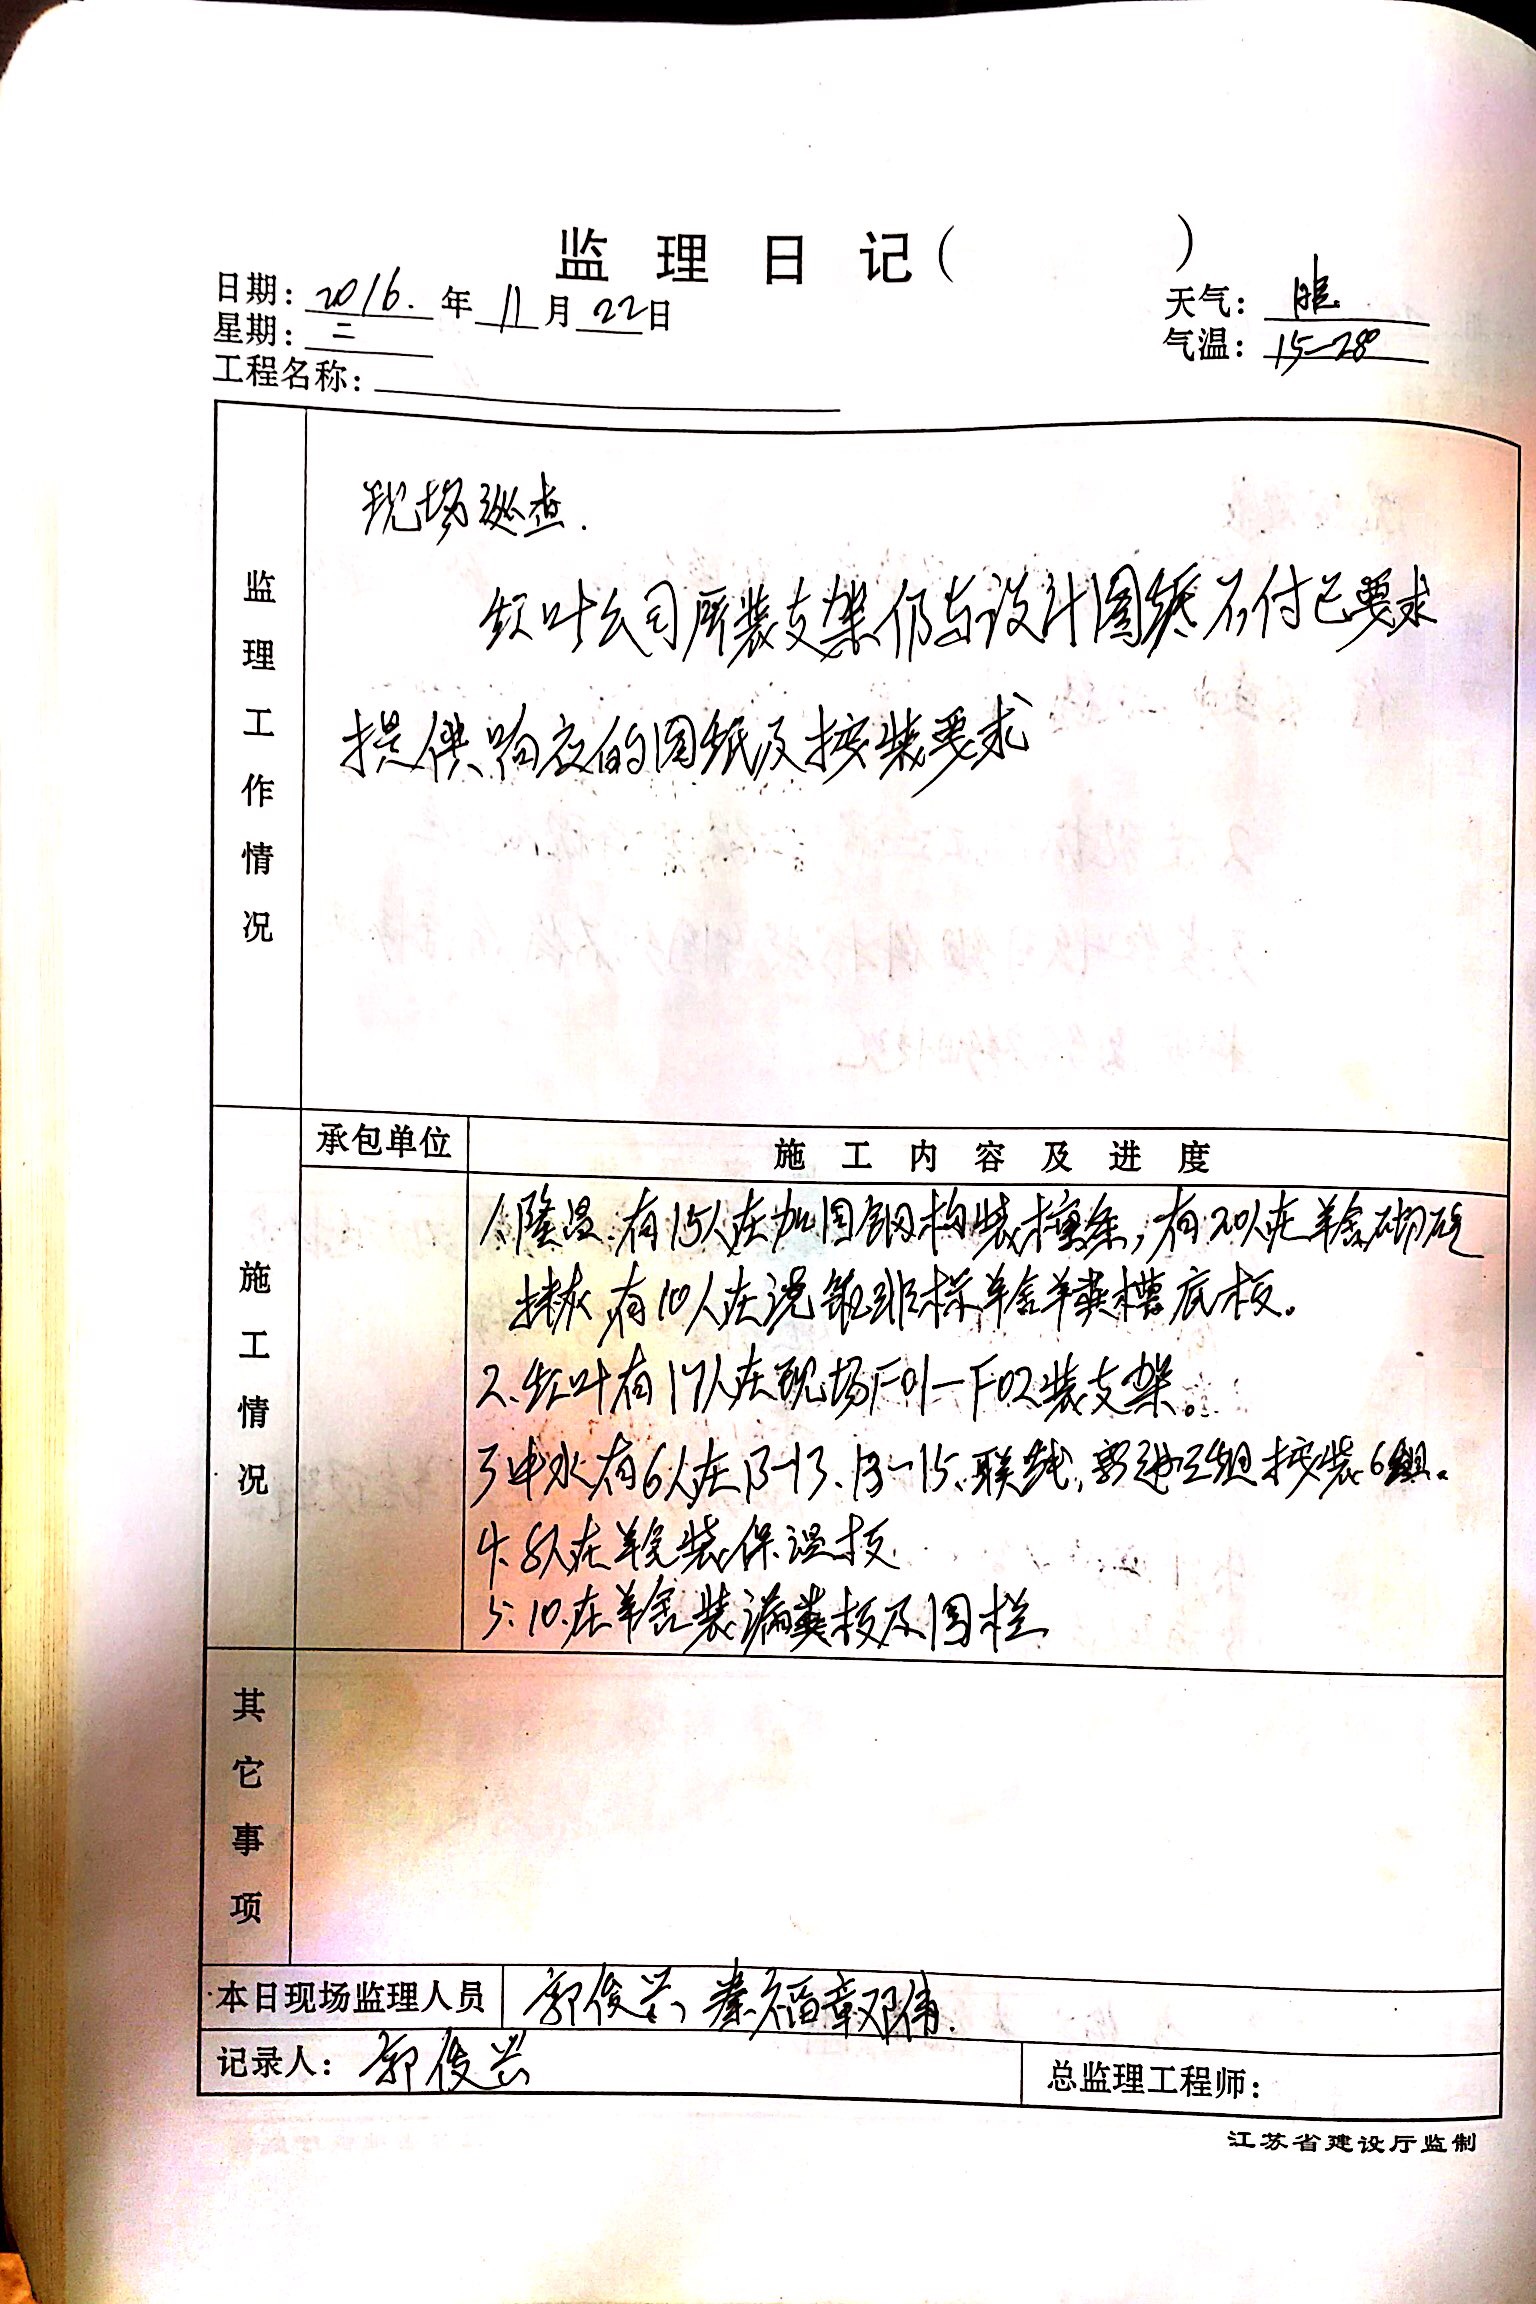 监理日记( )
日期: 2016. 年 11 月 22 日
天气: 晴
星期: 二
气温: 15-28°
工程名称:
监理工作情况
现场巡查.
红叶公司所装支架仍与设计图纸不付已要求
提供响应的图纸及按装要求
承包单位
施工内容及进度
施工情况
1、隆温:有15人在加固钢构装檩条,有20人在羊舍砌砖
抹灰,有10人在浇筑非标羊舍羊粪槽底板。
2、红叶有17人在现场F01-F02装支架。
3中水有6人在13-13、13-15、联线,组按装6组。
4、8人在羊舍装保温板
5:10.在羊舍装漏粪板及围栏
其它事项
本日现场监理人员
郭俊兴、秦福章邓伟.
记录人: 郭俊兴
总监理工程师:
江苏省建设厅监制